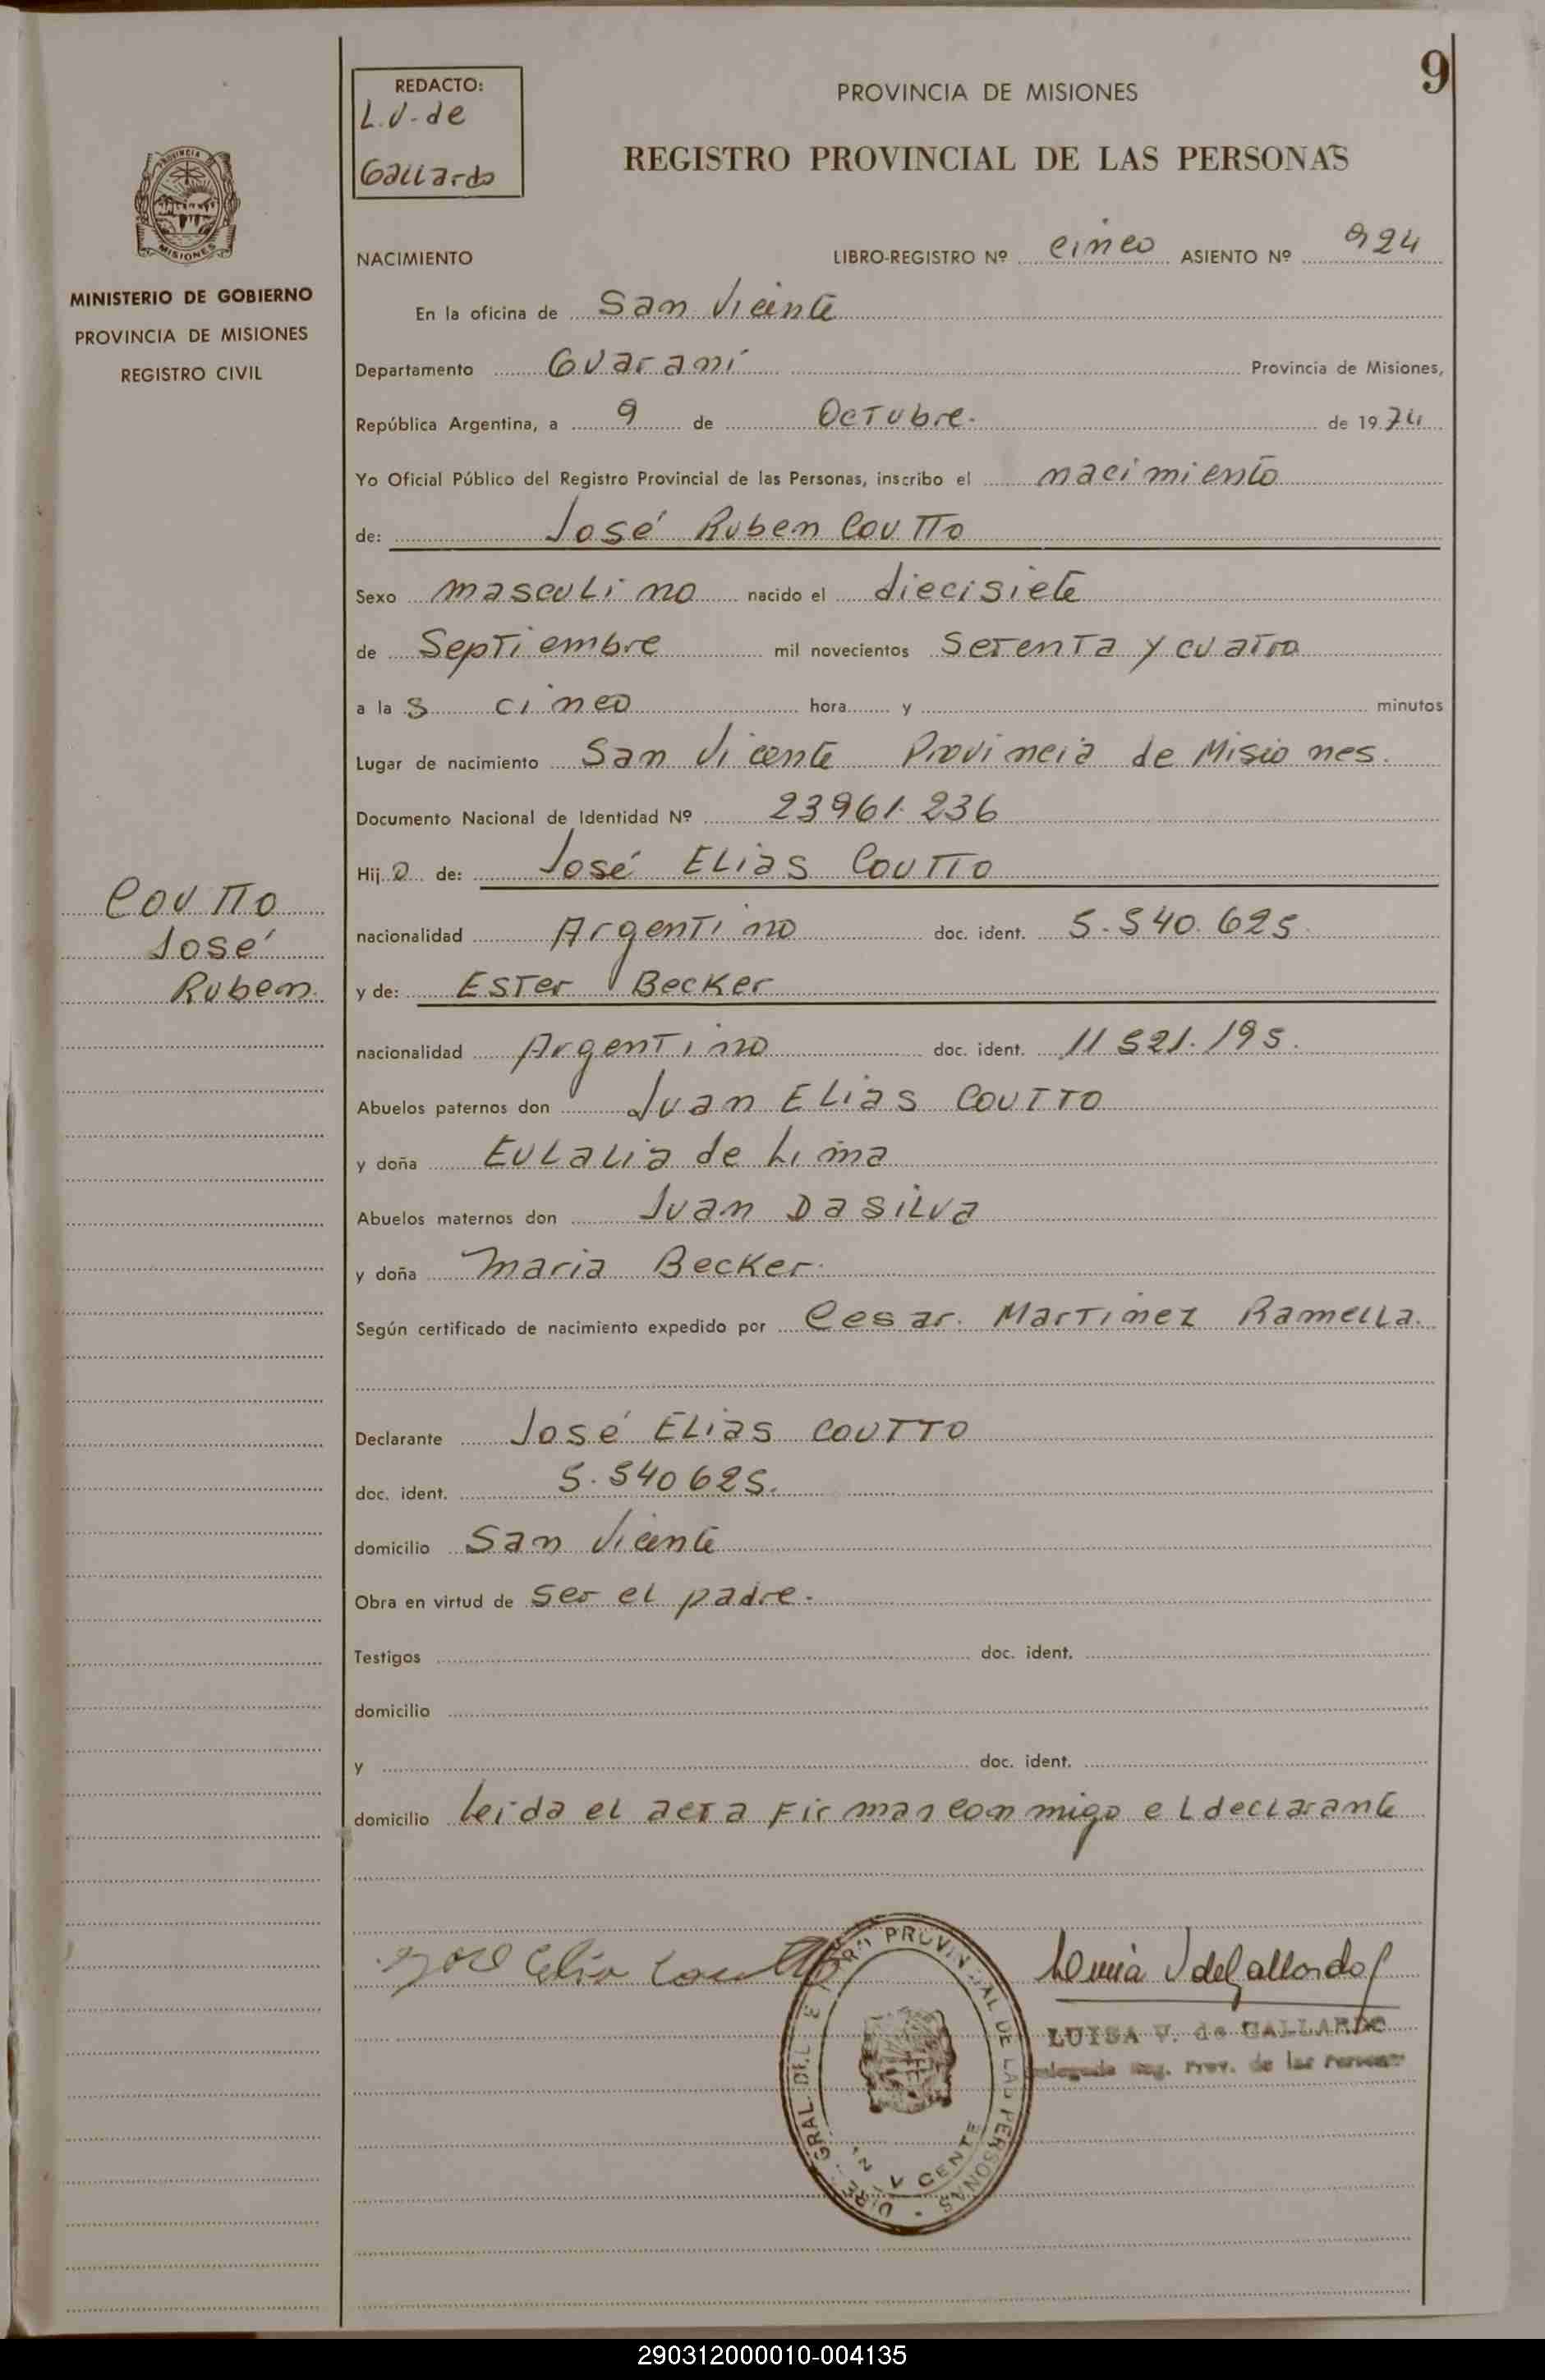 9
REDACTO:
L.V. de
Gallardo
PROVINCIA DE MISIONES
REGISTRO PROVINCIAL DE LAS PERSONAS
MISIONES
MINISTERIO DE GOBIERNO
PROVINCIA DE MISIONES
REGISTRO CIVIL
NACIMIENTO LIBRO-REGISTRO Nº cinco ASIENTO Nº 924
En la oficina de San Vicente
Departamento Guaraní Provincia de Misiones,
República Argentina, a 9 de Octubre. de 1974
Yo Oficial Público del Registro Provincial de las Personas, inscribo el nacimiento
de: José Ruben Coutto
Sexo masculino nacido el diecisiete
de Septiembre mil novecientos setenta y cuatro
a las cinco hora y minutos
Lugar de nacimiento San Vicente Provincia de Misiones.
Documento Nacional de Identidad Nº 23961.236
Hijo de: José Elias Coutto
Coutto
José
Ruben.
nacionalidad Argentino doc. ident. 5.540.625.
y de: Ester Becker
nacionalidad Argentino doc. ident. 11521.195.
Abuelos paternos don Juan Elias Coutto
y doña Eulalia de Lima
Abuelos maternos don Juan Dasilva
y doña Maria Becker.
Según certificado de nacimiento expedido por Cesar. Martinez Ramella.
Declarante José Elias Coutto
doc. ident. 5.540625.
domicilio San Vicente
Obra en virtud de ser el padre.
Testigos doc. ident.
domicilio
y doc. ident.
domicilio leida el acta firman conmigo el declarante
Jose Elia Coutto
LUISA V. de GALLARDO
Reg. Prov. de las Personas
290312000010-004135